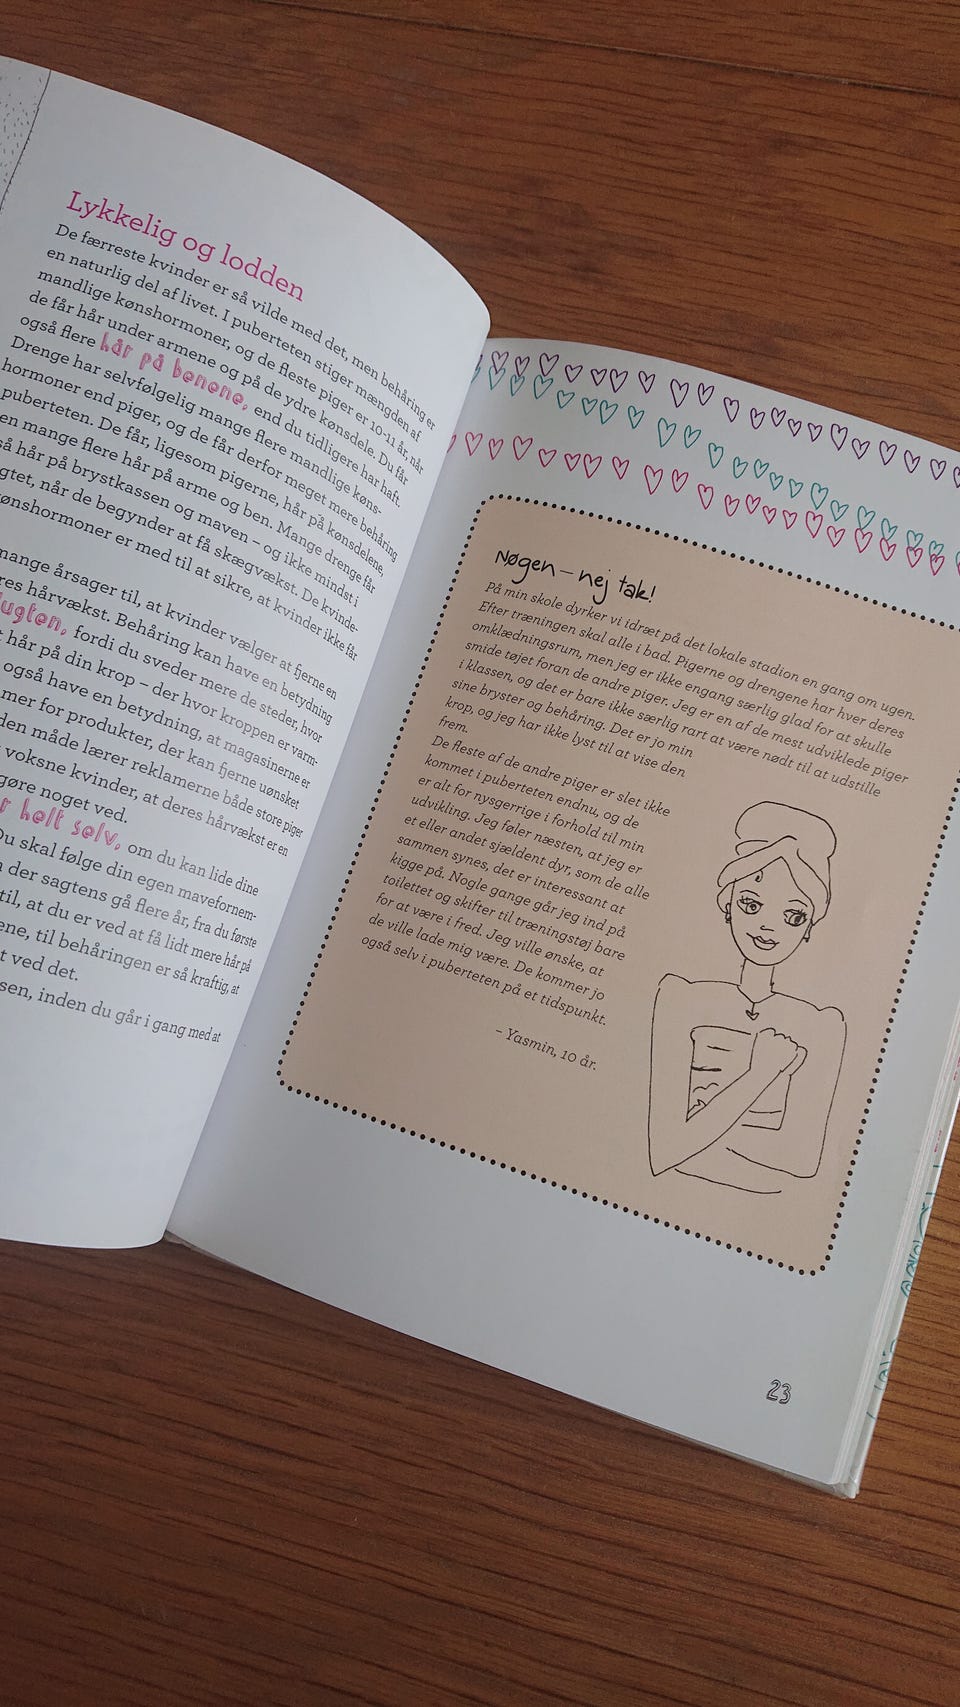 Lykkelig og lodden
De færreste kvinder er så vilde med det, men behåring er
en naturlig del af livet. I puberteten stiger mængden af
mandlige kønshormoner, og de fleste piger er 10-11 år, når
de får hår under armene og på de ydre kønsdele. Du får
også flere hår på benene, end du tidligere har haft.
Drenge har selvfølgelig mange flere mandlige køns-
hormoner end piger, og de får derfor meget mere behåring
puberteten. De får, ligesom pigerne, hår på kønsdelene,
en mange flere hår på arme og ben. Mange drenge får
så hår på brystkassen og maven – og ikke mindst i
gtet, når de begynder at få skægvækst. De kvinde-
ønshormoner er med til at sikre, at kvinder ikke får
mange årsager til, at kvinder vælger at fjerne en
res hårvækst. Behåring kan have en betydning
lugten, fordi du sveder mere de steder, hvor
t hår på din krop – der hvor kroppen er varm-
også have en betydning, at magasinerne er
mer for produkter, der kan fjerne uønsket
den måde lærer reklamerne både store piger
voksne kvinder, at deres hårvækst er en
gøre noget ved.
r helt selv, om du kan lide dine
Du skal følge din egen mavefornem-
der sagtens gå flere år, fra du første
til, at du er ved at få lidt mere hår på
ene, til behåringen er så kraftig, at
t ved det.
sen, inden du går i gang med at
Nøgen – nej tak!
På min skole dyrker vi idræt på det lokale stadion en gang om ugen.
Efter træningen skal alle i bad. Pigerne og drengene har hver deres
omklædningsrum, men jeg er ikke engang særlig glad for at skulle
smide tøjet foran de andre piger. Jeg er en af de mest udviklede piger
i klassen, og det er bare ikke særlig rart at være nødt til at udstille
sine bryster og behåring. Det er jo min
krop, og jeg har ikke lyst til at vise den
frem.
De fleste af de andre piger er slet ikke
kommet i puberteten endnu, og de
er alt for nysgerrige i forhold til min
udvikling. Jeg føler næsten, at jeg er
et eller andet sjældent dyr, som de alle
sammen synes, det er interessant at
kigge på. Nogle gange går jeg ind på
toilettet og skifter til træningstøj bare
for at være i fred. Jeg ville ønske, at
de ville lade mig være. De kommer jo
også selv i puberteten på et tidspunkt.
– Yasmin, 10 år.
23